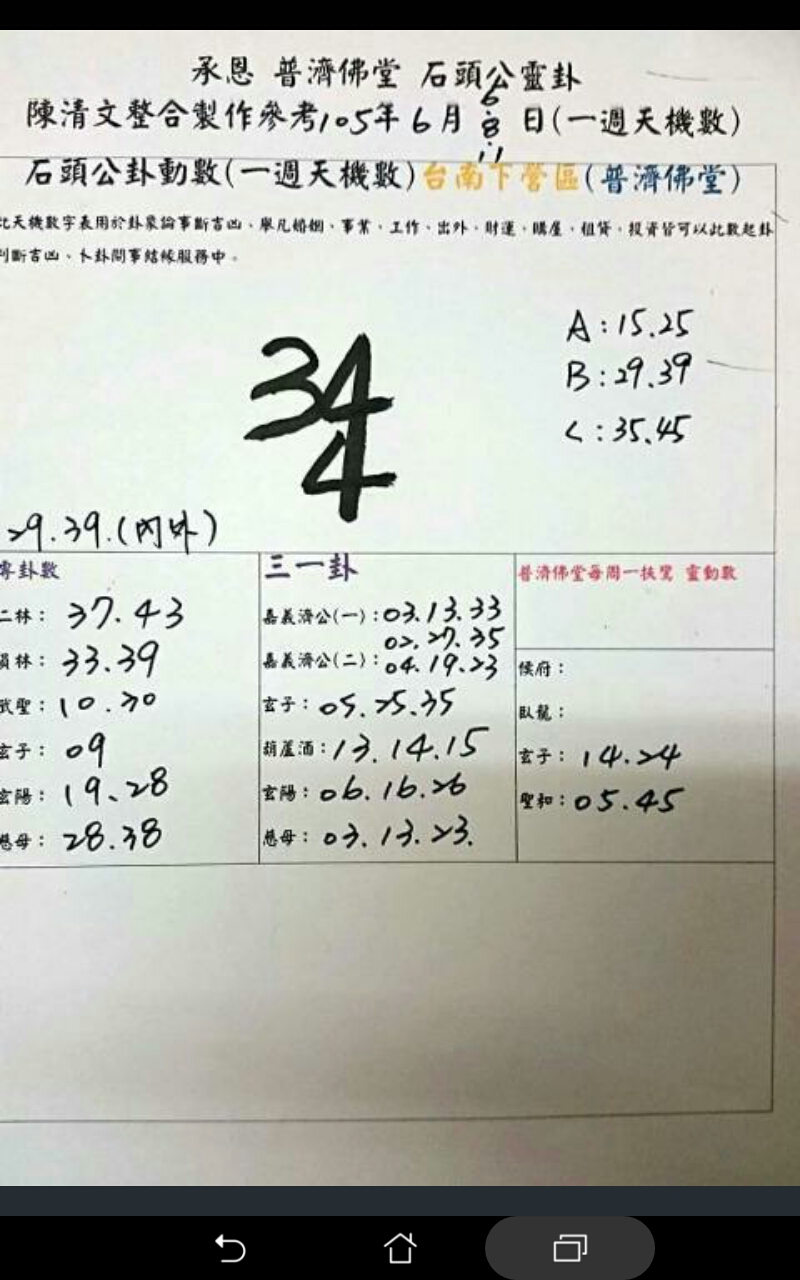 承恩 普濟佛堂 石頭公靈卦
陳清文整合製作參考105年6月6.8.11日(一週天機數)
石頭公卦動數(一週天機數)台南下營區(普濟佛堂)
此天機數字表用於卦象論事斷吉凶、舉凡婚姻、事業、工作、出外、財運、購屋、租貸、投資皆可以此數起卦
判斷吉凶、卜卦問事結緣服務中。
34
4
A:15.25
B:29.39
C:35.45
29.39.(內外)
專卦數
二林: 37.43
33.39
武聖: 10.30
玄子: 09
玄陽: 19、28
慈母: 28.38
三一卦
嘉義濟公(一): 03.13.33
02.27.35
嘉義濟公(二): 04.19.23
玄子: 05.25.35
葫蘆酒: 13.14.15
玄陽: 06.16.26
慈母: 03.13.23.
普濟佛堂每周一扶鸞 靈動數
候府:
臥龍:
玄子: 14.24
聖和: 05.45